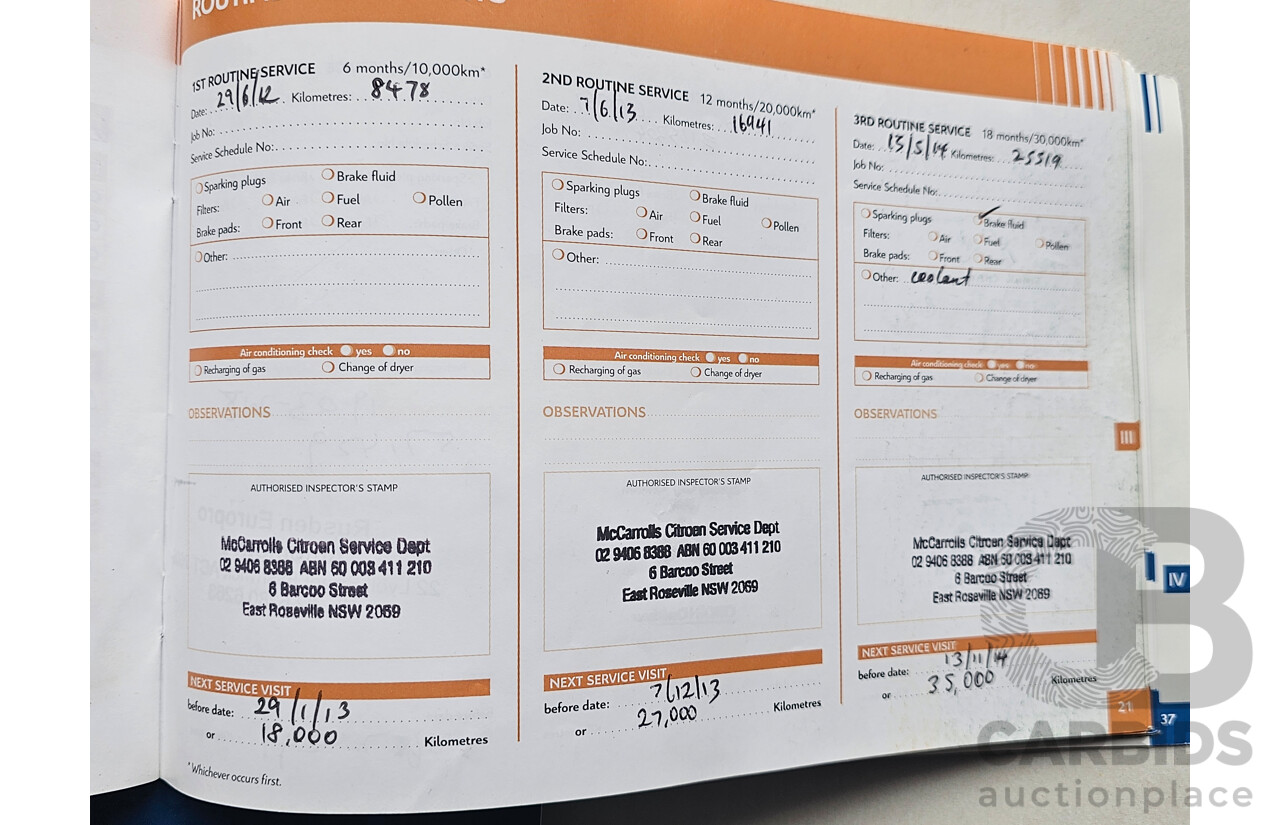 1ST ROUTINE SERVICE 6 months/10,000km*
Date: 29/6/12 Kilometres: 8478
Job No:
Service Schedule No:
Sparking plugs Brake fluid
Filters: Air Fuel Pollen
Brake pads: Front Rear
Other:
Air conditioning check yes no
Recharging of gas Change of dryer
OBSERVATIONS
AUTHORISED INSPECTOR'S STAMP
McCarrolls Citroen Service Dept
02 9406 8388 ABN 60 003 411 210
6 Barcoo Street
East Roseville NSW 2069
NEXT SERVICE VISIT
before date: 29/1/13
or 18,000 Kilometres
*Whichever occurs first.
2ND ROUTINE SERVICE 12 months/20,000km*
Date: 7/6/13 Kilometres: 16941
Job No:
Service Schedule No:
Sparking plugs Brake fluid
Filters: Air Fuel Pollen
Brake pads: Front Rear
Other:
Air conditioning check yes no
Recharging of gas Change of dryer
OBSERVATIONS
AUTHORISED INSPECTOR'S STAMP
McCarrolls Citroen Service Dept
02 9406 8388 ABN 60 003 411 210
6 Barcoo Street
East Roseville NSW 2069
NEXT SERVICE VISIT
before date: 7/12/13
or 27,000 Kilometres
3RD ROUTINE SERVICE 18 months/30,000km*
Date: 13/5/14 Kilometres: 25519
Job No:
Service Schedule No:
Sparking plugs Brake fluid
Filters: Air Fuel Pollen
Brake pads: Front Rear
Other: coolant
Air conditioning check yes no
Recharging of gas Change of dryer
OBSERVATIONS
AUTHORISED INSPECTOR'S STAMP
McCarrolls Citroen Service Dept
02 9406 8388 ABN 60 003 411 210
6 Barcoo Street
East Roseville NSW 2069
NEXT SERVICE VISIT
before date: 13/11/14
or 35,000 Kilometres
III
IV
21
37
CARBIDS
auctionplace